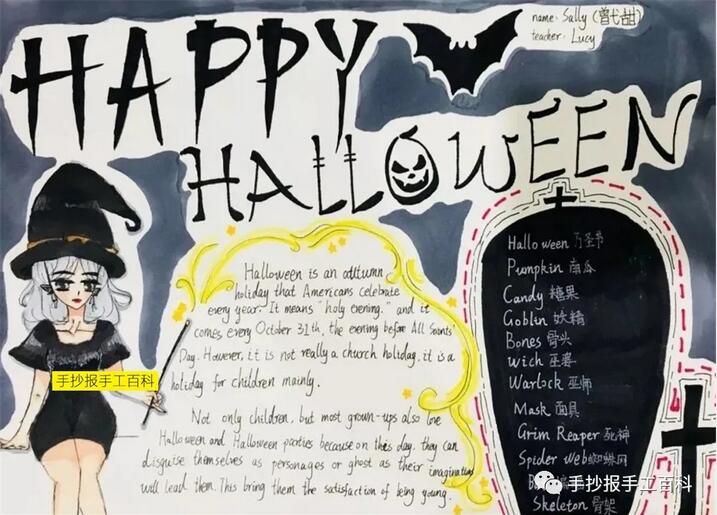 HAPPY
HALLOWEEN
name: Sally (曾弋甜)
teacher: Lucy
Halloween is an autumn
holiday that Americans celebrate
every year. It means "holy evening," and it
comes every October 31th, the evening before All Saints'
Day. However, it is not really a church holiday, it is a
holiday for children mainly.
Not only children, but most grown-ups also love
Halloween and Halloween parties because on this day, they can
disguise themselves as personages or ghost as their imagination
will lead them. This bring them the satisfaction of being young.
Halloween 万圣节
Pumpkin 南瓜
Candy 糖果
Goblin 妖精
Bones 骨头
Wich 巫婆
Warlock 巫师
Mask 面具
Grim Reaper 死神
Spider Web 蜘蛛网
Skeleton 骨架
手抄报手工百科
手抄报手工百科